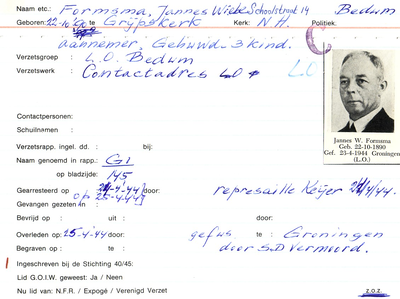 Naam etc.: Formsma, Jannes Wiebe Schoolstraat 14 Bedum
Geboren: 22-10- te Grijpskerk Kerk: N.H. Politiek:
aannemer, Gehuwd - 3 kind.
Verzetsgroep : L.O. Bedum
Verzetswerk : Contactadres LO LO
Contactpersonen:
Schuilnamen :
Jannes W. Formsma
Geb. 22-10-1890
Gef. 23-4-1944 Groningen
(L.O.)
Verzetsrapp. ingel. dd. : bij:
Naam genoemd in rapp.: G1
op bladzijde: 145
Gearresteerd op -4-'44 door: represaille Keijer /4/44.
Gevangen gezeten in: op 25-4-'44
Bevrijd op : uit : door:
Overleden op: 25-4-'44 door: gefus. te : Groningen
Begraven op : te : door S.D. vermoord.
Ingeschreven bij de Stichting 40/45:
Lid G.O.I.W. geweest: Ja / Neen
Nu lid van: N.F.R. / Expogé / Verenigd Verzet z.o.z.